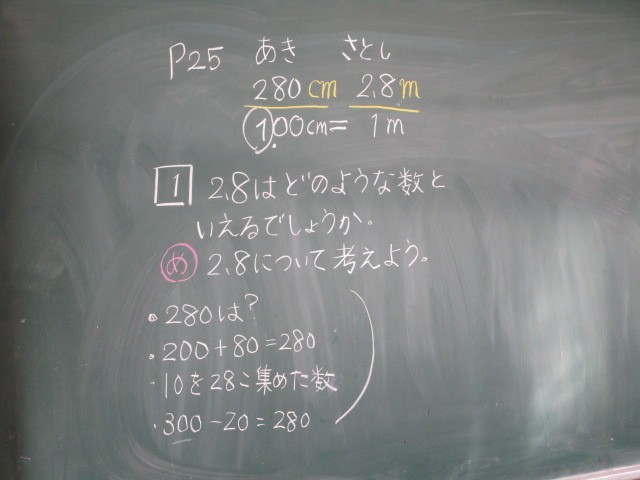 P25 あき さとし
280cm 2.8m
1.00cm= 1m
1 2.8はどのような数と
いえるでしょうか。
め 2.8について考えよう。
・280は?
・200+80=280
・10を28こ集めた数
・300-20=280